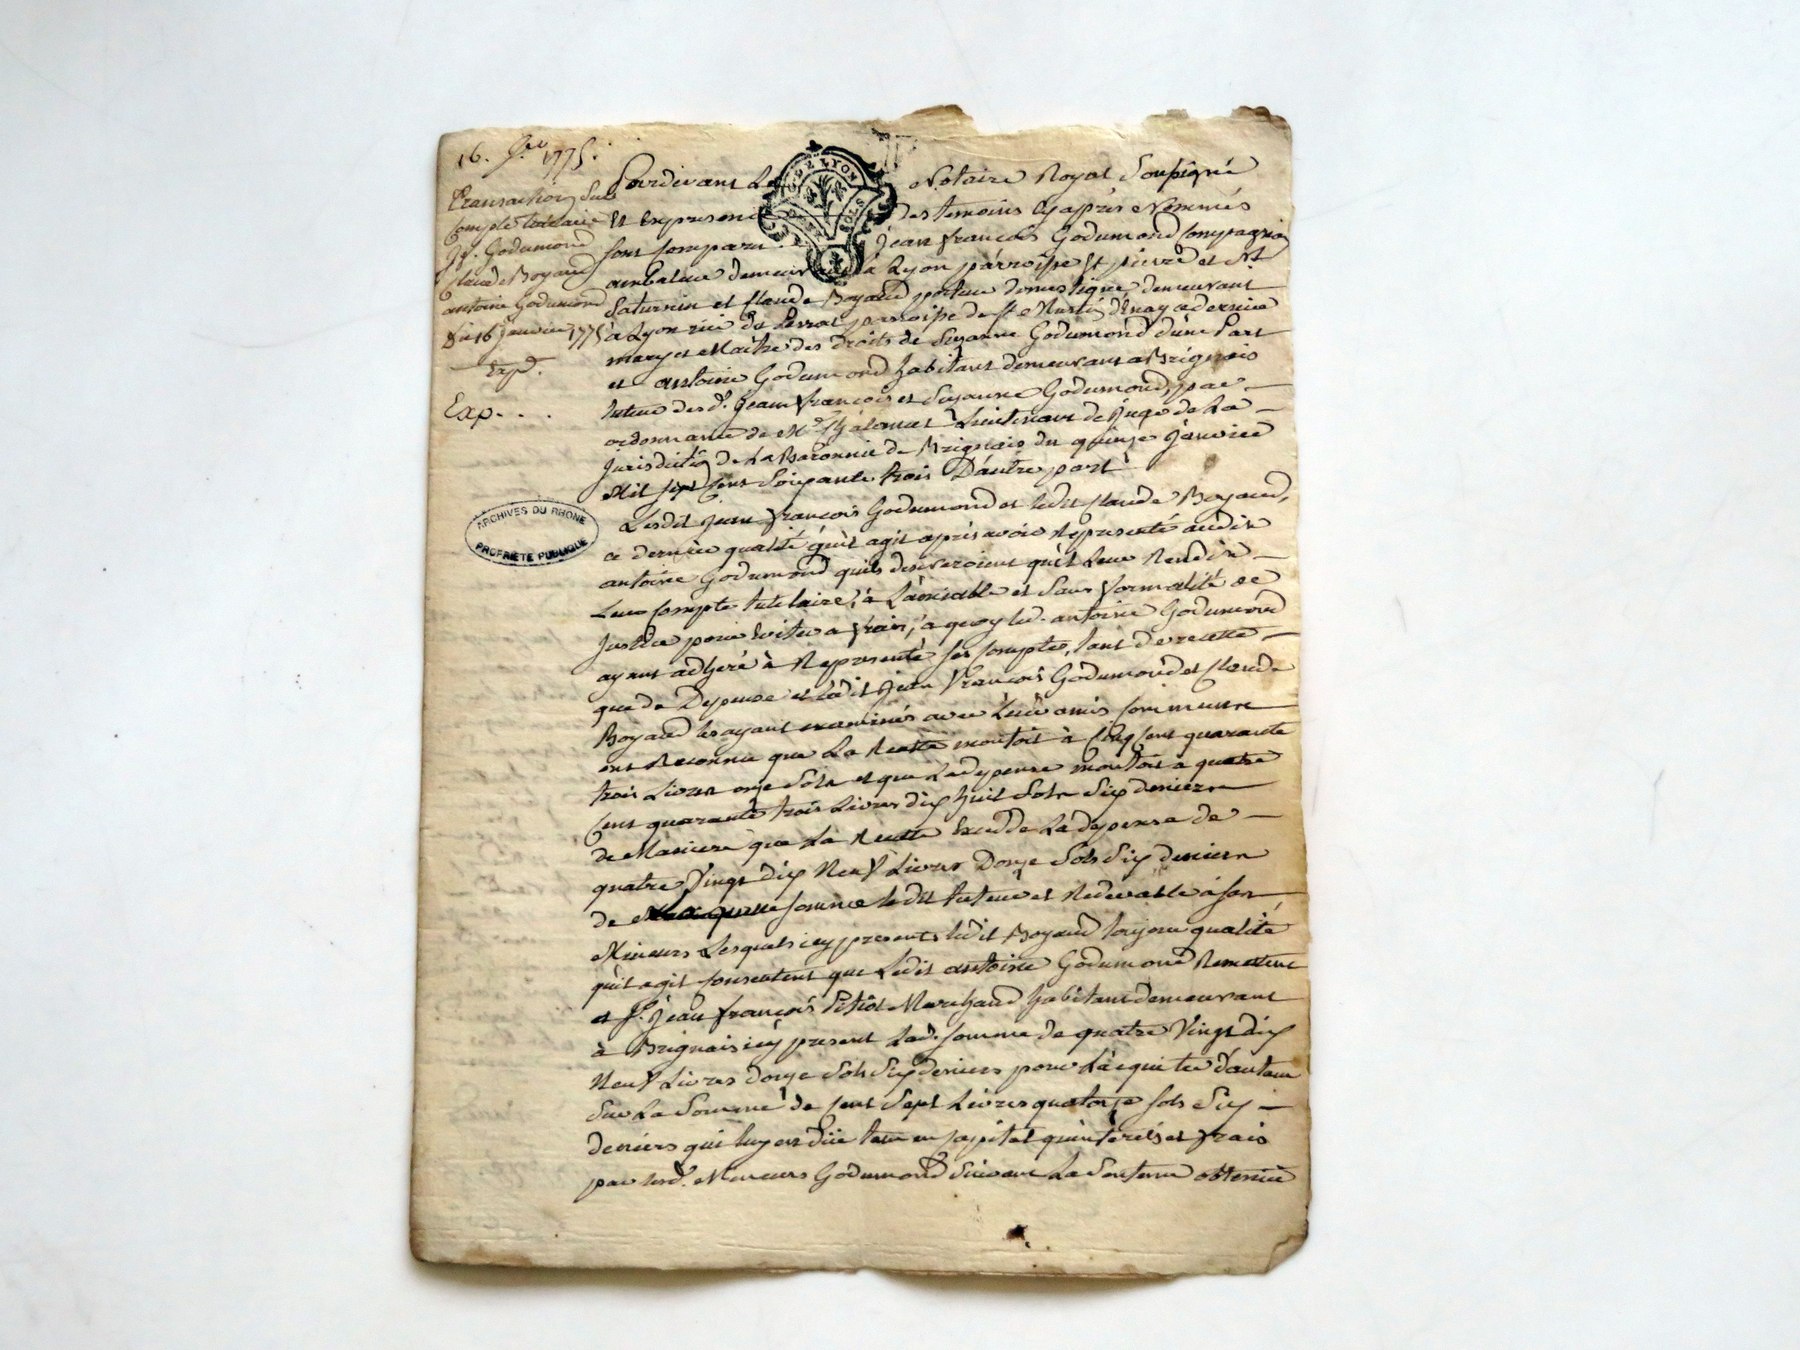 16. Jer 1775.
Transaction sur
Compte tutelaire
Jf. Godumond
Claude Boyaud
antoine Godumond
Du 16 Janvier 1775
Exp.
Exp...
G. DE LYON
SOLS
ARCHIVES DU RHONE
PROPRIÉTÉ PUBLIQUE
Pardevant Le Notaire Royal Soussigné
Et En presence des temoins cy après Nommés
sont comparu Jean françois Godumond Compagnon
demeurant à Lyon parroisse St pierre et St
Saturnin et Claude Boyaud porteur domestique, demeurant
à Lyon rue du Perrat parroisse de St Martin d'Enay ce dernier
mary et Maitre des droits de Suzanne Godumond d'une Part
et antoine Godumond habitant demeurant a Brignais
tuteur des d. Jean françois et Suzanne Godumond, par
ordonnance de Mr Lieutenant de Juge de La
Jurisdiction de La Baronnie de Brignais du quinze Janvier
Mil sept Cent Soixante trois D'autre part
Lesdit Jean françois Godumond et ledit Claude Boyaud,
ce dernier qualité qu'il agit après avoir Representé audit
antoine Godumond quils desireroient qu'il Leur Rendit
Leur Compte tutelaire, à L'amiable et Sans formalité de
Justice pour Eviter a frais, a quoy led. antoine Godumond
ayant adheré à Representé ses Comptes, tant de recette
que de Depense et ledit Jean françois Godumond et Claude
Boyaud les ayant examinés avec Leur amis communs
ont Reconnu que La Recette montoit à Cinq Cent quarante
trois Livres onze Sols et que La depense montoit a quatre
Cent quarante trois Livres dix huit Sols Six deniers
de Maniere que La Recette Excede La depense de
quatre Vingt dix Neuf Livres Douze Sols Six deniers
de laquelle somme ledit tuteur est Redevable à ses
Mineurs Lesquels icy presents ledit Boyaud toujours qualité
qu'il agit consentent que Ledit antoine Godumond Remettent
et Sr. Jean françois Pitiot Marchand habitant demeurant
à Brignais icy present Lad. somme de quatre Vingt dix
Neuf Livres douze Sols Six deniers pour L'acquiter d'autant
Sur La Somme de Cent Sept Livres quatorze sols Six
deniers qui luy est düe tant en Capital qu'interêts et frais
par lesd. Mineurs Godumond Suivant La Sentence obtenüe